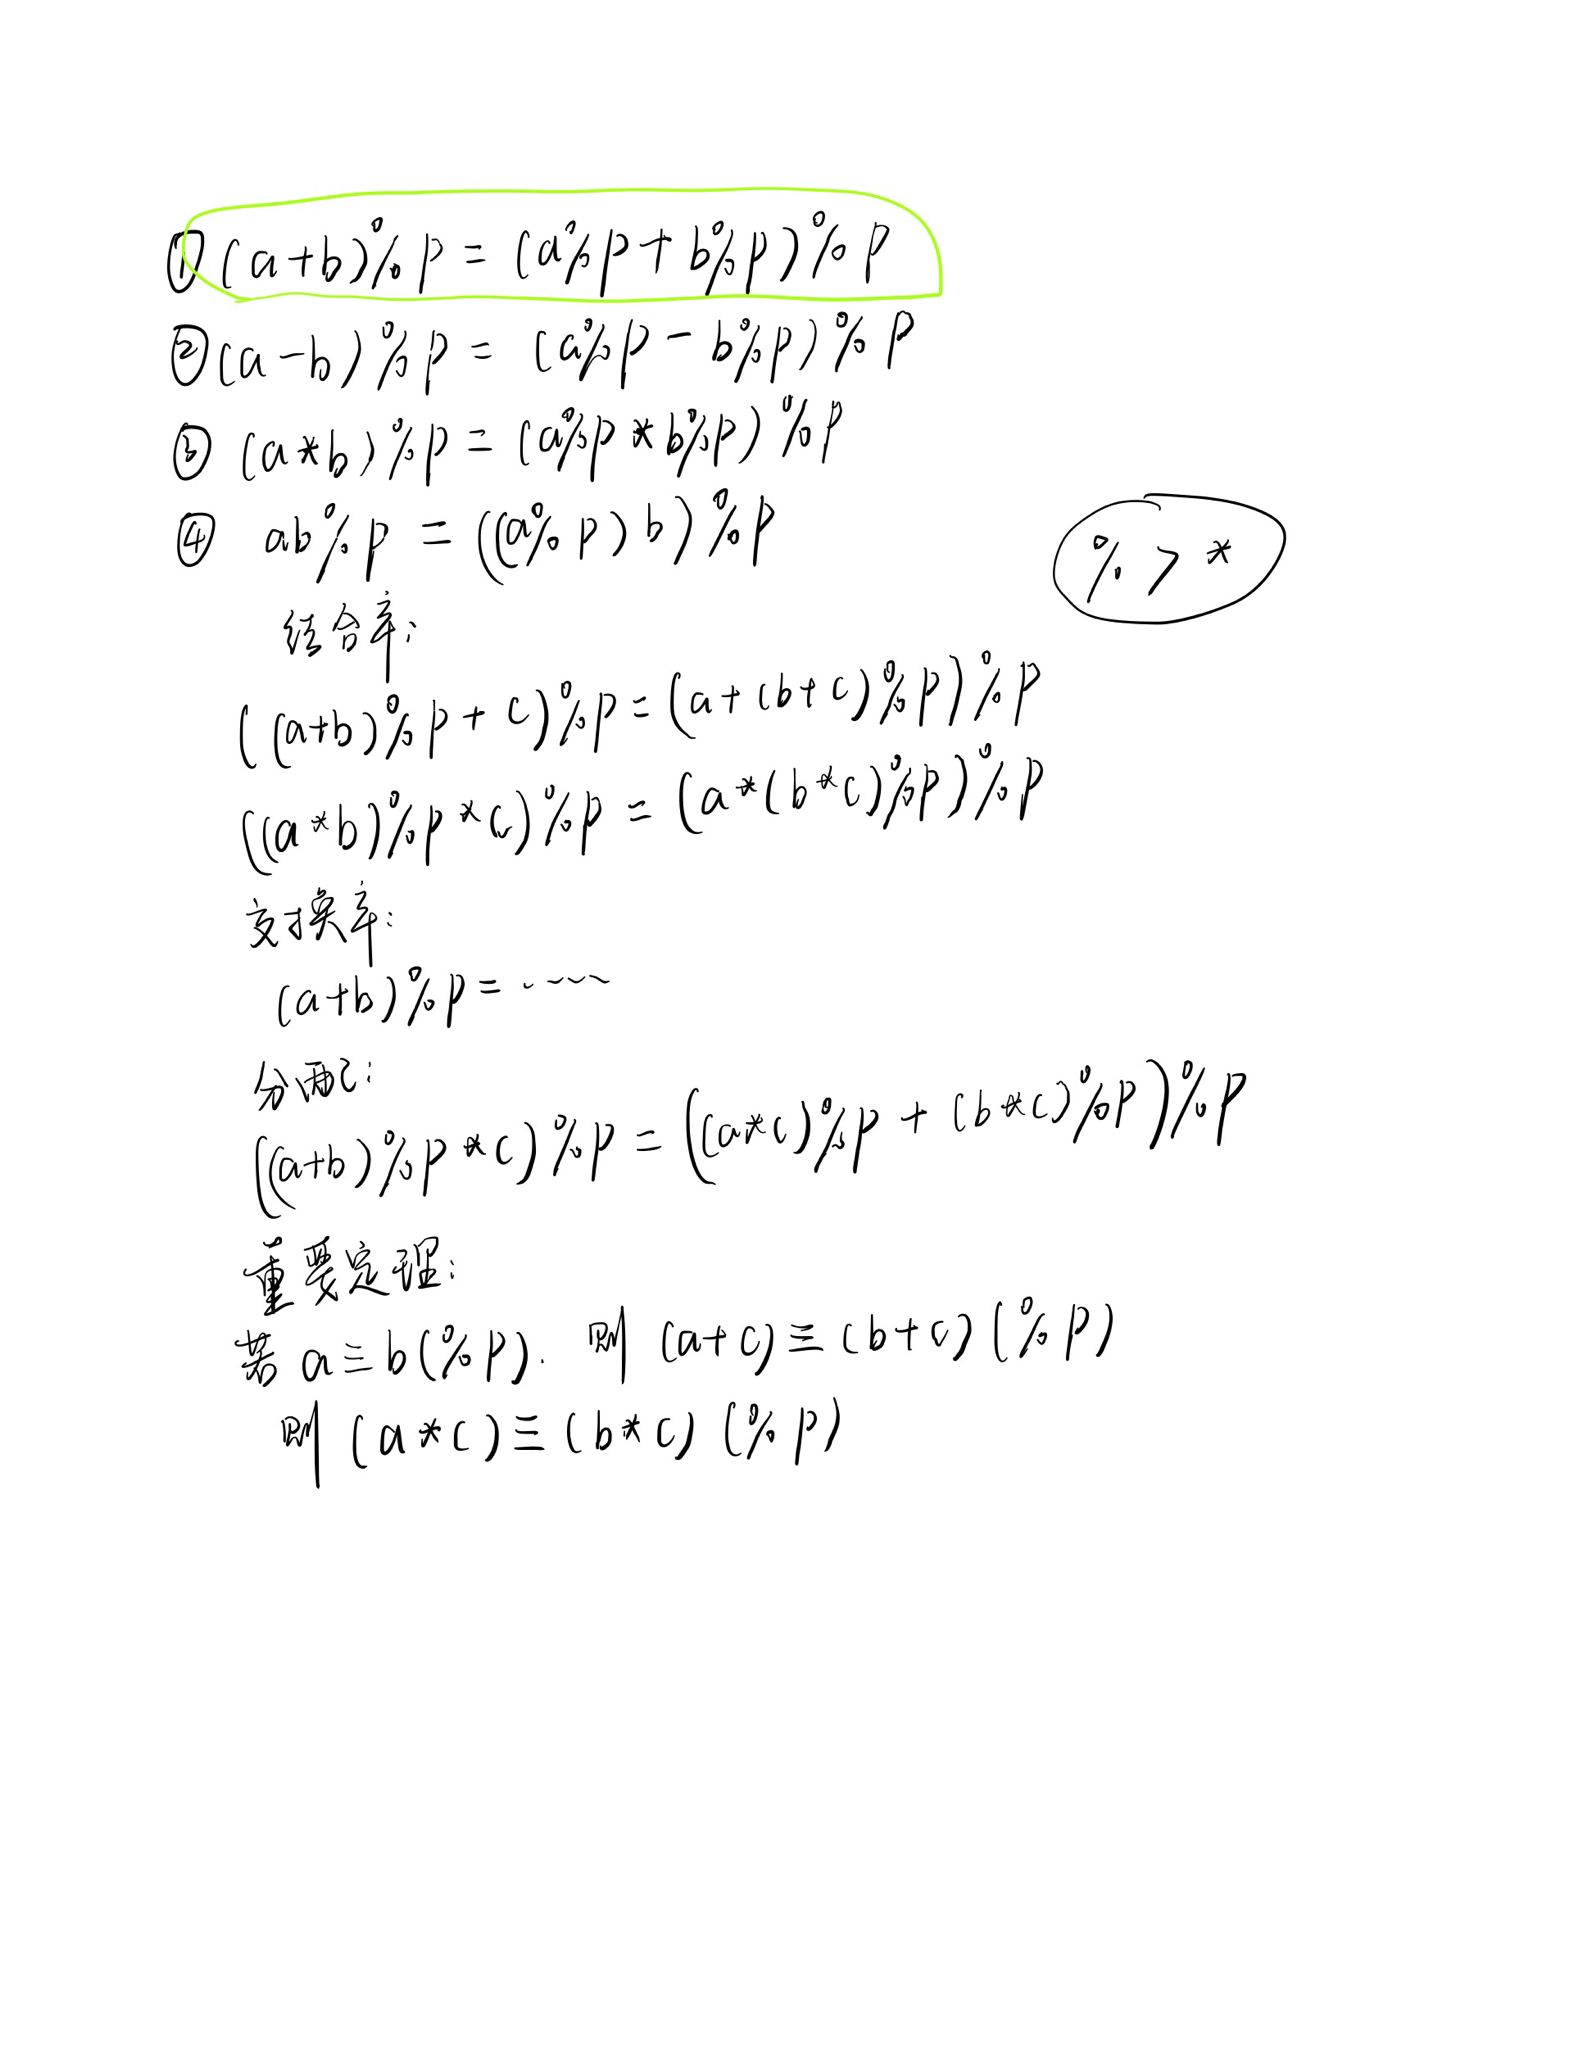 ① (a+b)%p = (a%p + b%p)%p
② (a-b)%p = (a%p - b%p)%p
③ (a*b)%p = (a%p * b%p)%p
④ ab%p = ((a%p)b)%p
% > *
结合率:
((a+b)%p + c)%p = (a+(b+c)%p)%p
((a*b)%p * c)%p = (a*(b*c)%p)%p
交换率:
(a+b)%p = .....
分配:
((a+b)%p * c)%p = ((a*c)%p + (b*c)%p)%p
重要定理:
若 a≡b(%p). 则 (a+c)≡(b+c)(%p)
则 (a*c)≡(b*c)(%p)